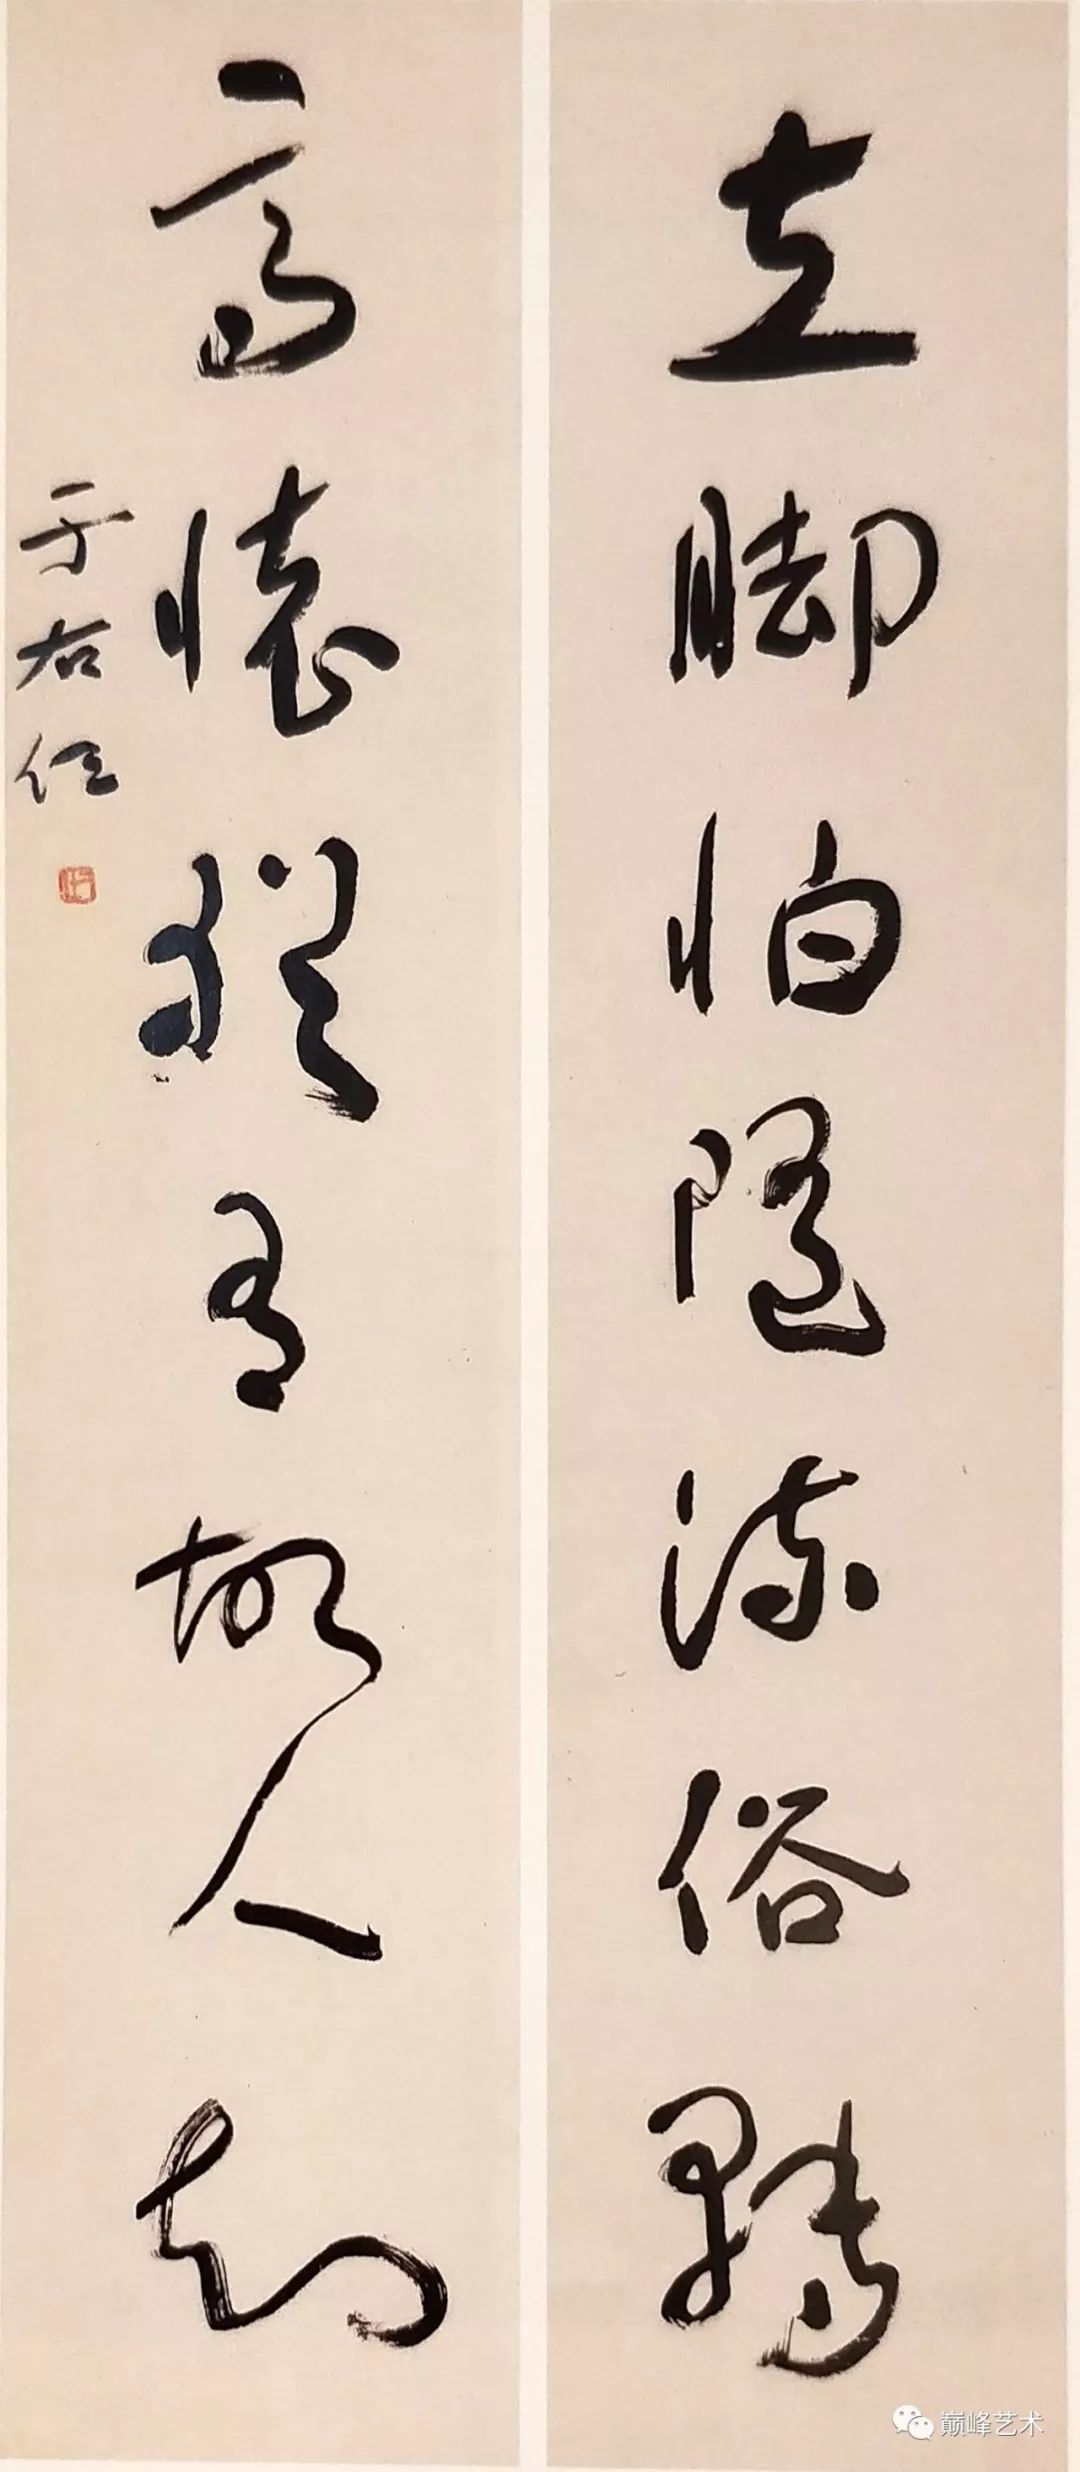 立脚怕随流俗转
高怀犹有故人知
于右任
巅峰艺术